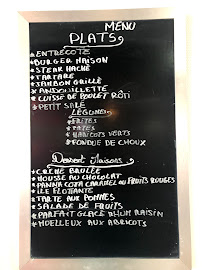 MENU
PLATS
*ENTRECÔTE
*BURGER MAISON
*STEAK HACHÉ
*TARTARE
*JAMBON GRILLÉ
*ANDOUILLETTE
*CUISSE DE POULET RÔTI
*PETIT SALÉ
LÉGUMES
*FRITES
*PATES
*HARICOTS VERTS
*FONDUE DE CHOUX
Dessert Maisons
*CRÈME BRULÉE
*MOUSSE AU CHOCOLAT
*PANNA COTA CARAMEL ou FRUITS ROUGES
*ILE FLOTTANTE
*TARTE AUX POMMES
*SALADE DE FRUITS
*PARFAIT GLACÉ RHUM RAISIN
*MOELLEUX AUX ABRICOTS